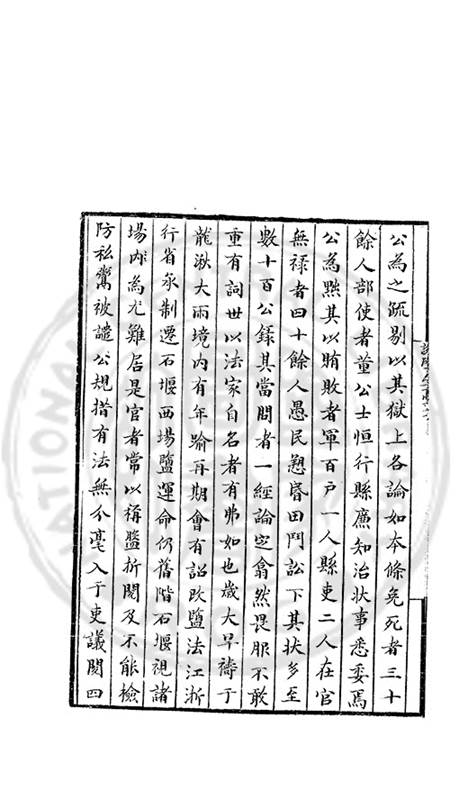 公為之疏剔以其獄上各論如本條免死者三十
餘人部使者董公士恒行縣廉知治狀事悉委焉
公為黜其以賄敗者軍百戶一人縣吏二人在官
無祿者四十餘人愚民愬昏田鬥訟下其狀多至
數十百公錄其當問者一經論定翕然畏服不敢
重有詞世以法家自名者有弗如也歲大旱禱于
龍湫大雨境內有年踰再期會有詔改鹽法江浙
行省承制遷石堰西場鹽運命仍舊階石堰視諸
場內為尤難居是官者常以稱盤折閱及不能檢
防私鬻被譴公規措有法無分毫入于吏議閱四